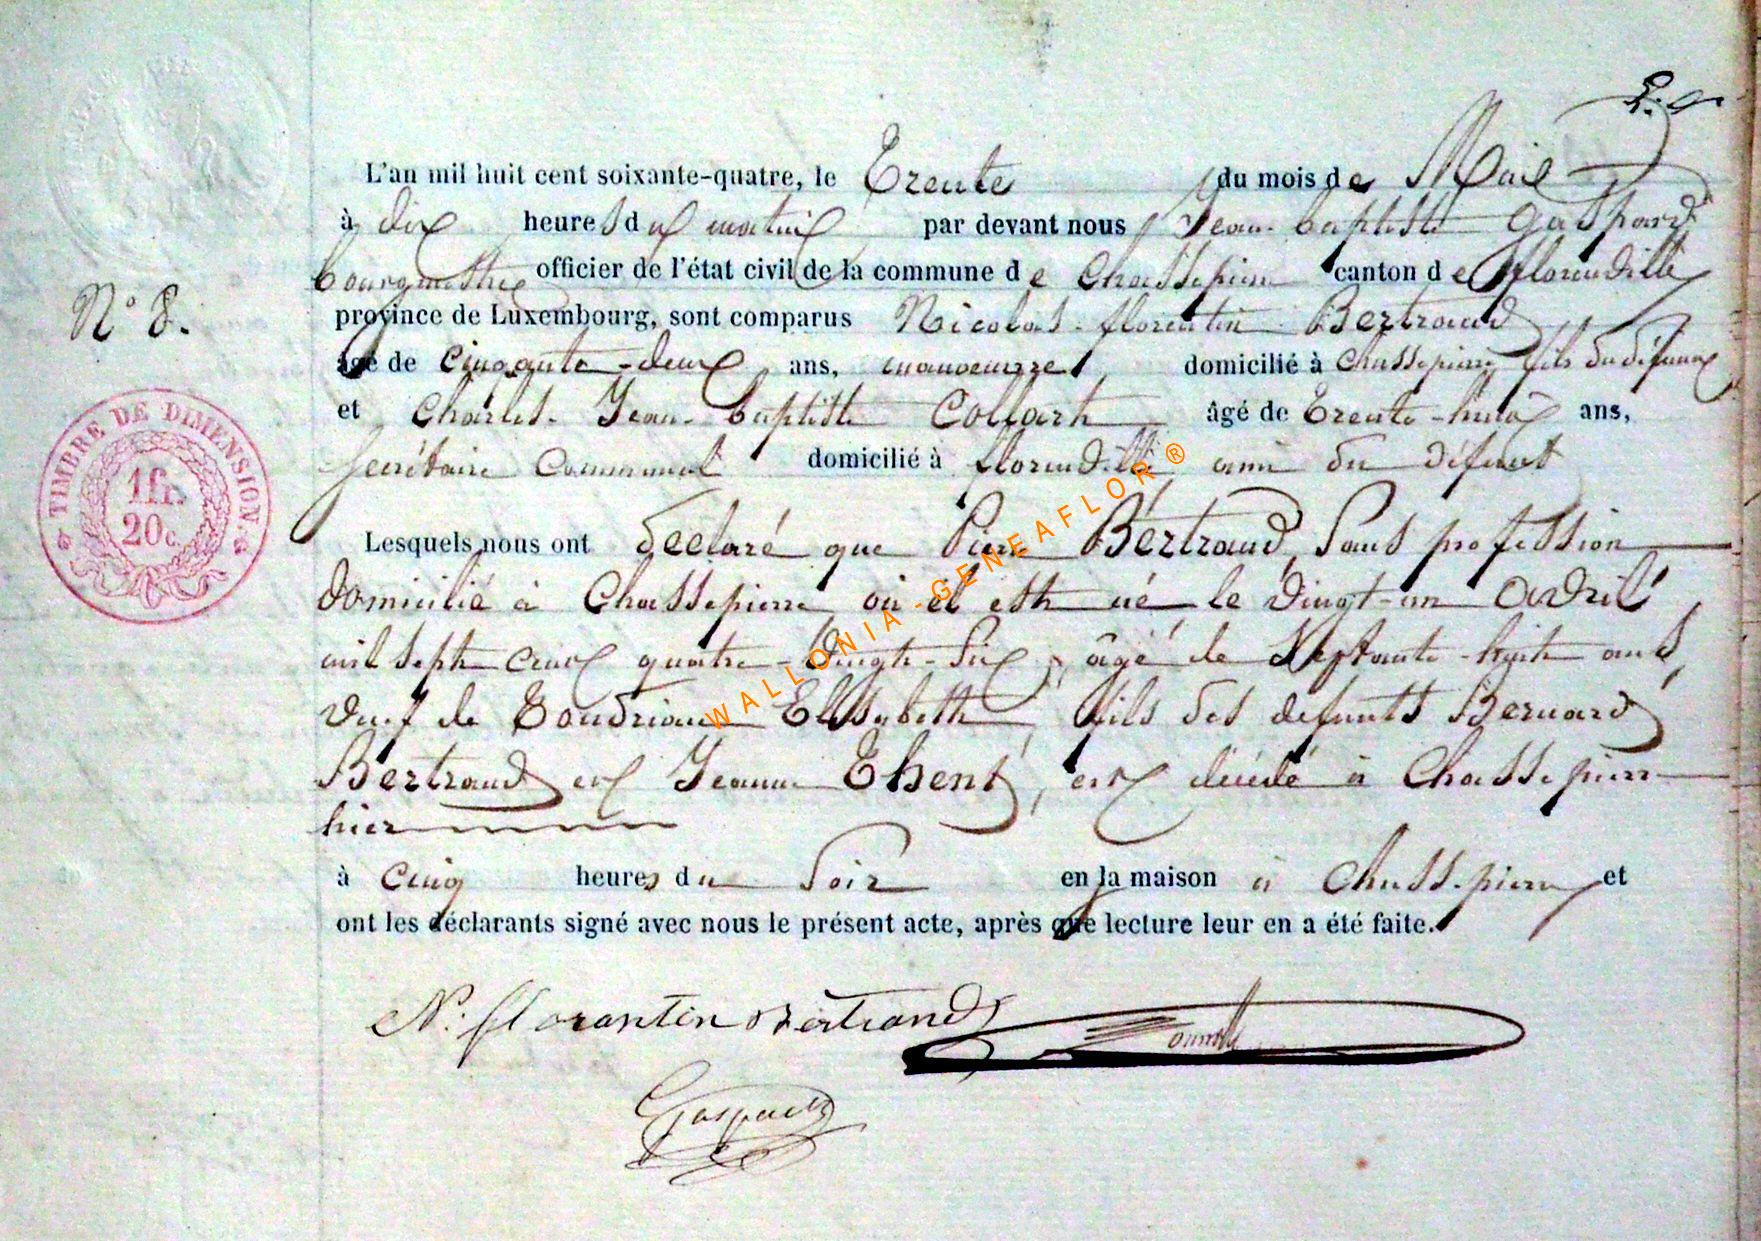 L'an mil huit cent soixante-quatre, le Trente du mois de Mai
à dix heures du matin par devant nous Jean-baptiste Gaspard
bourgmestre officier de l'état civil de la commune de Chassepierre canton de florenville
province de Luxembourg, sont comparus Nicolas-florentin Bertrand
âgé de cinquante-deux ans, manoeuvre domicilié à Chassepierre fils du défunt
N° 8.
et Charles-Jean-baptiste Collart âgé de Trente-huit ans,
Secrétaire Communal domicilié à florenville ami du défunt
TIMBRE DE DIMENSION.
1 fr.
20 c.
Lesquels nous ont declaré que Pierre Bertrand, Sans profession
domicilié à Chassepierre où il est né le vingt-un Avril
mil sept cent quatre-vingt-six, âgé de Septante-huit ans,
veuf de Elisabeth, fils des defunts Bernard
Bertrand et Jeanne, et décédé à Chassepierre
hier
à cinq heures du soir en la maison à Chassepierre et
ont les déclarants signé avec nous le présent acte, après que lecture leur en a été faite.
N. florantin Bertrand
Gaspard
WALLONIA-GENEAFLOR®